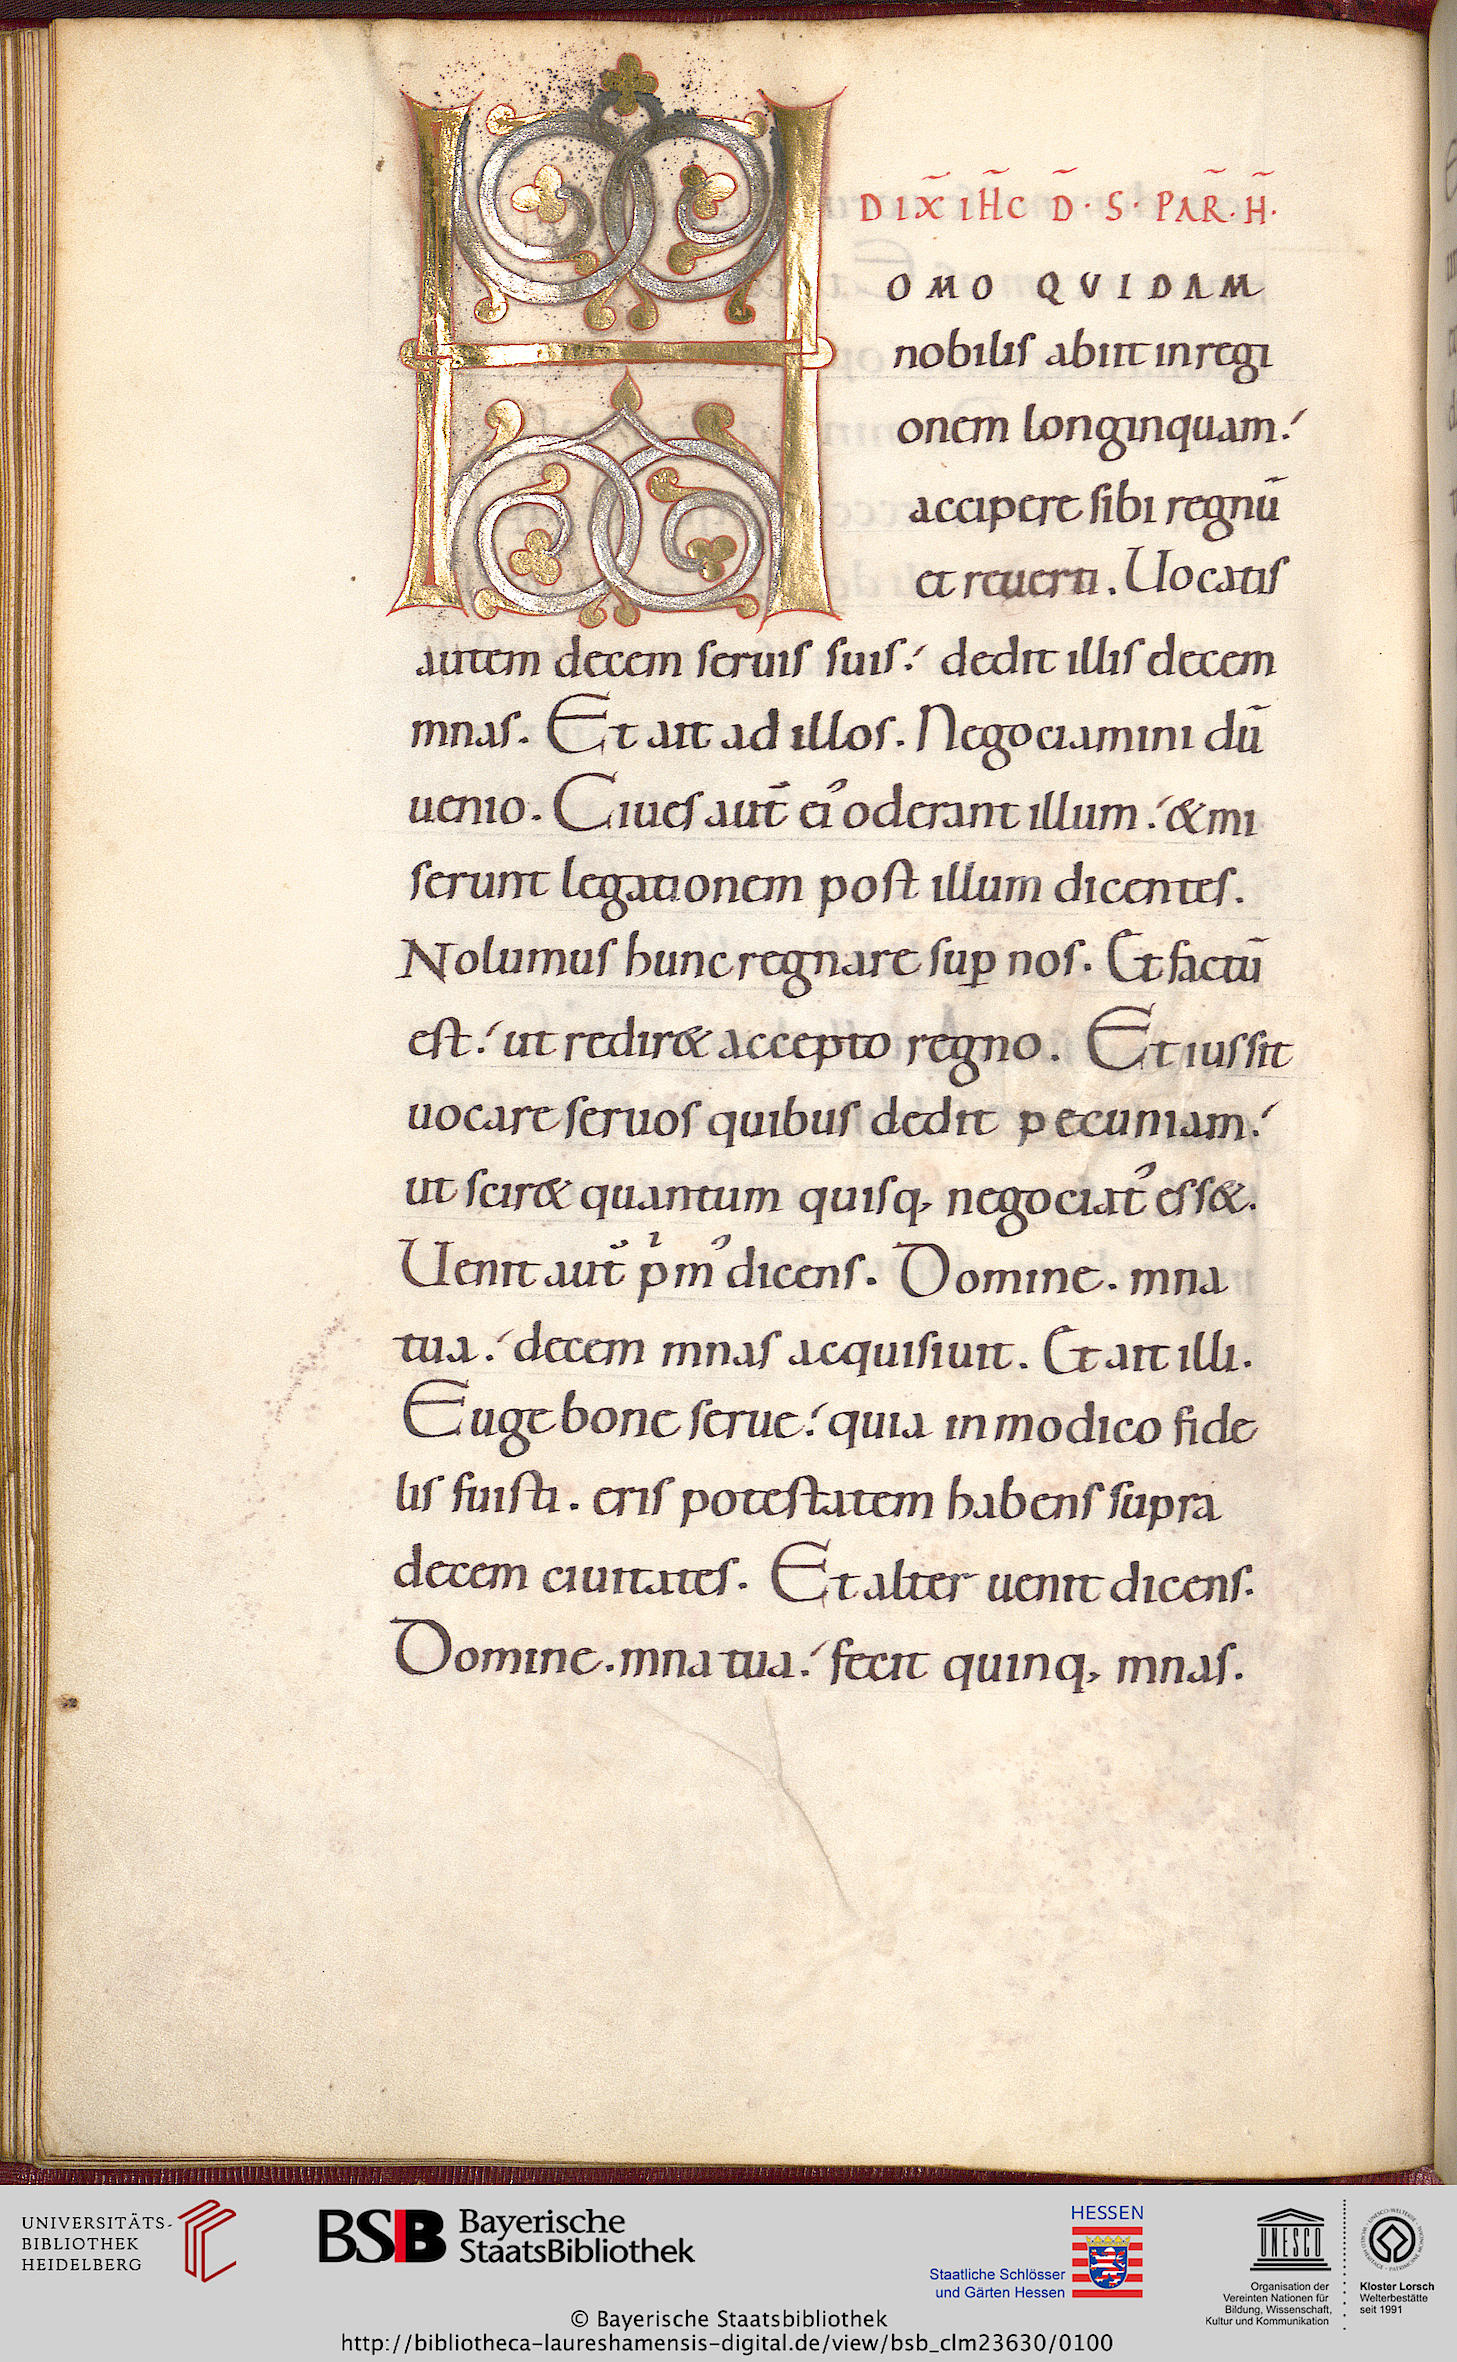 DIX̄ IH̄C D̄·S·PAR̄·H̄·
HOMO QVIDAM
nobilis abiit in regi
onem longinquam:
accipere sibi regnū
et reuerti. Uocatis
autem decem seruis suis: dedit illis decem
mnas. Et ait ad illos. Negociamini dū
uenio. Ciues aut̄ ei᾽ oderant illum: & mi
serunt legationem post illum dicentes.
Nolumus hunc regnare suꝑ nos. Et factū
est: ut redir& accepto regno. Et iussit
uocare seruos quibus dedit pecuniam:
ut scir& quantum quisq; negociat᾽ ess&.
Uenit aut̄ pͥm᾽ dicens. Domine. mna
tua: decem mnas acquisiuit. Et ait illi.
Euge bone serue: quia in modico fide
lis fuisti. eris potestatem habens supra
decem ciuitates. Et alter uenit dicens.
Domine. mna tua: fecit quinq; mnas.
UNIVERSITÄTS-
BIBLIOTHEK
HEIDELBERG
BSB Bayerische
StaatsBibliothek
HESSEN
Staatliche Schlösser
und Gärten Hessen
UNESCO
Organisation der
Vereinten Nationen für
Bildung, Wissenschaft,
Kultur und Kommunikation
Kloster Lorsch
Welterbestätte
seit 1991
© Bayerische Staatsbibliothek
http://bibliotheca-laureshamensis-digital.de/view/bsb_clm23630/0100